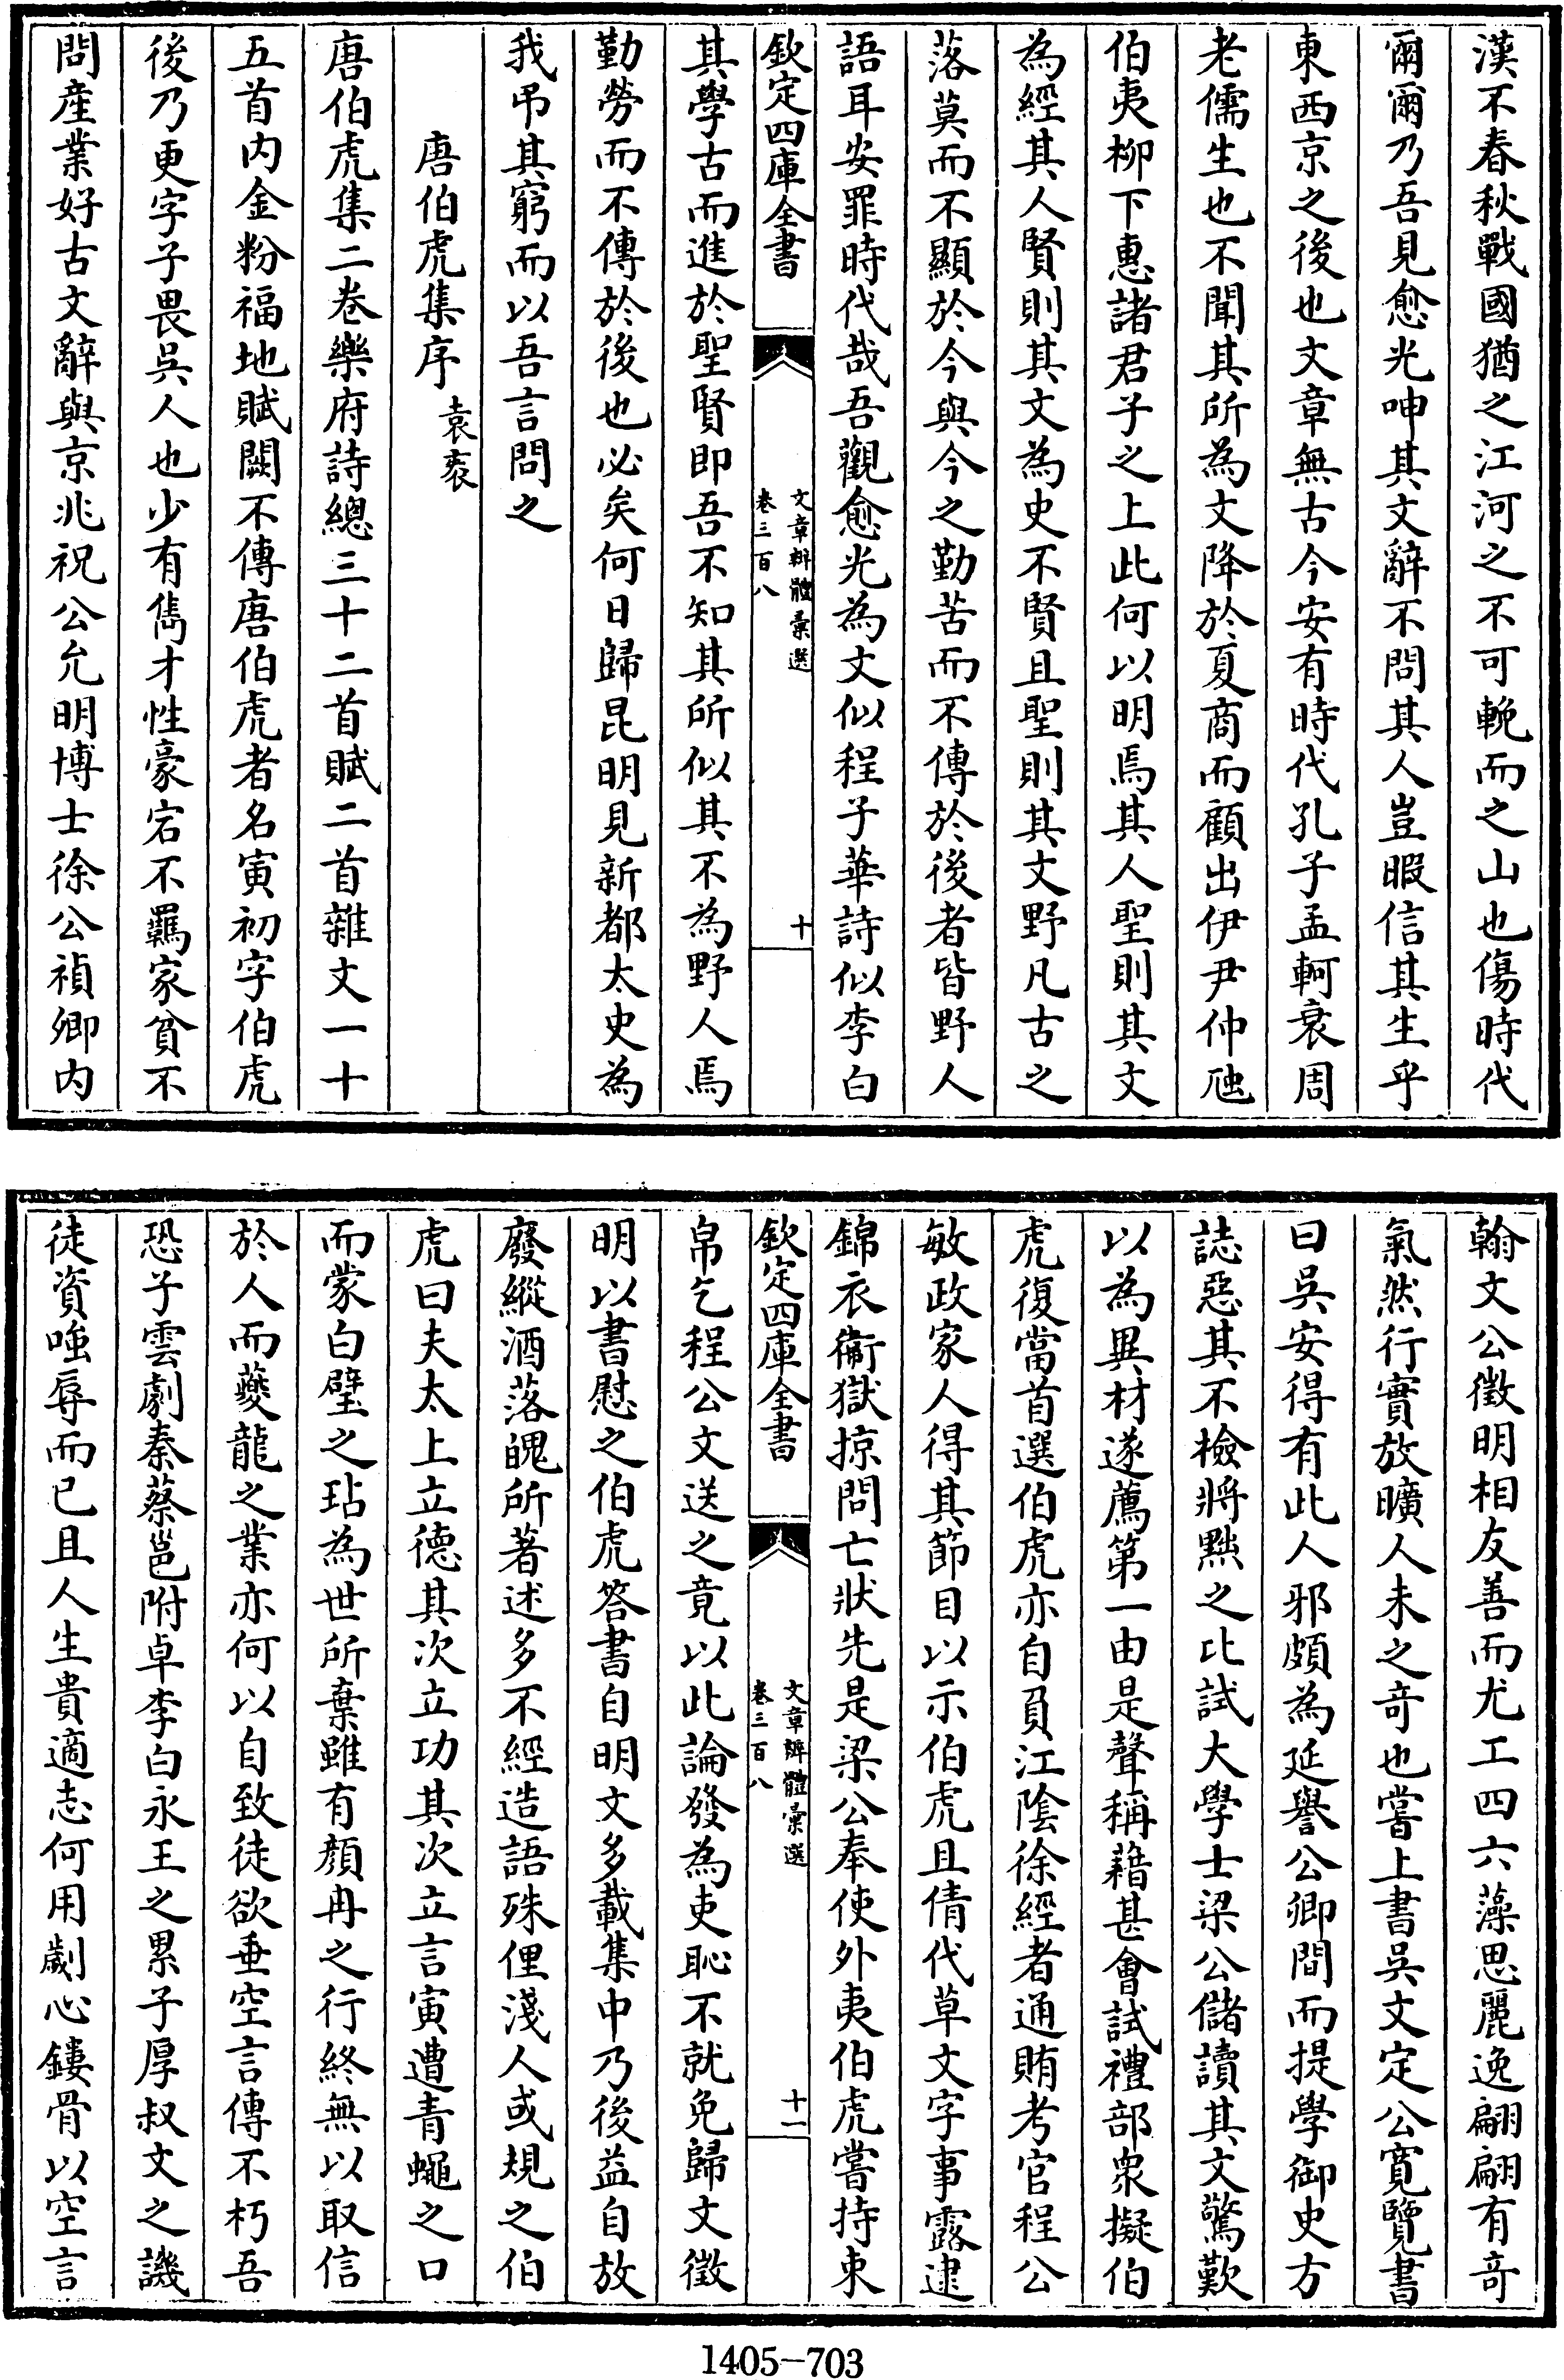 漢不春秋戰國猶之江河之不可輓而之山也傷時代
爾爾乃吾見愈光呻其文辭不問其人豈暇信其生乎
東西京之後也文章無古今安有時代孔子孟軻衰周
老儒生也不聞其所為文降於夏商而顧出伊尹仲虺
伯夷柳下惠諸君子之上此何以明焉其人聖則其文
為經其人賢則其文為史不賢且聖則其文野凡古之
落莫而不顯於今與今之勤苦而不傳於後者皆野人
語耳安罪時代哉吾觀愈光為文似程子華詩似李白
欽定四庫全書
文章辨體彙選
卷三百八
十
其學古而進於聖賢即吾不知其所似其不為野人焉
勤勞而不傳於後也必矣何日歸昆明見新都太史為
我弔其窮而以吾言問之
唐伯虎集序 袁袠
唐伯虎集二卷樂府詩總三十二首賦二首雜文一十
五首内金粉福地賦闕不傳唐伯虎者名寅初字伯虎
後乃更字子畏吳人也少有雋才性豪宕不羈家貧不
問産業好古文辭與京兆祝公允明博士徐公禎卿内
翰文公徵明相友善而尤工四六藻思麗逸翩翩有奇
氣然行實放曠人未之奇也嘗上書吳文定公寬覽書
曰吳安得有此人邪頗為延譽公卿間而提學御史方
誌惡其不檢將黜之比試大學士梁公儲讀其文驚歎
以為異材遂薦第一由是聲稱藉甚會試禮部衆擬伯
虎復當首選伯虎亦自負江陰徐經者通賄考官程公
敏政家人得其節目以示伯虎且倩代草文字事露逮
錦衣衞獄掠問亡狀先是梁公奉使外夷伯虎嘗持束
欽定四庫全書
文章辨體彙選
卷三百八
十一
帛乞程公文送之竟以此論發為吏恥不就免歸文徵
明以書慰之伯虎答書自明文多載集中乃後益自放
廢縱酒落魄所著述多不經造語殊俚淺人或規之伯
虎曰夫太上立德其次立功其次立言寅遭青蠅之口
而蒙白璧之玷為世所棄雖有顏冉之行終無以取信
於人而夔龍之業亦何以自致徒欲垂空言傳不朽吾
恐子雲劇秦蔡邕附卓李白永王之累子厚叔文之譏
徒資嗤辱而已且人生貴適志何用劌心鏤骨以空言
1405-703